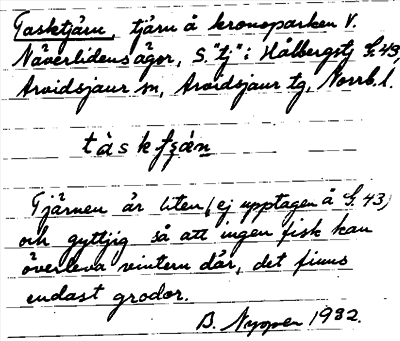 Tasktjärn, tjärn å kronoparken V.
Näverlidens ägor, S. "tj" i Hålbergstj S. 43,
Arvidsjaur sn, Arvidsjaur tg, Norrb. l.
tàskt̯ǯǽn
Tjärnen är liten (ej upptagen å S. 43)
och gyttjig så att ingen fisk kan
överleva vintern där, det finns
endast grodor.
B. Nyman 1932.